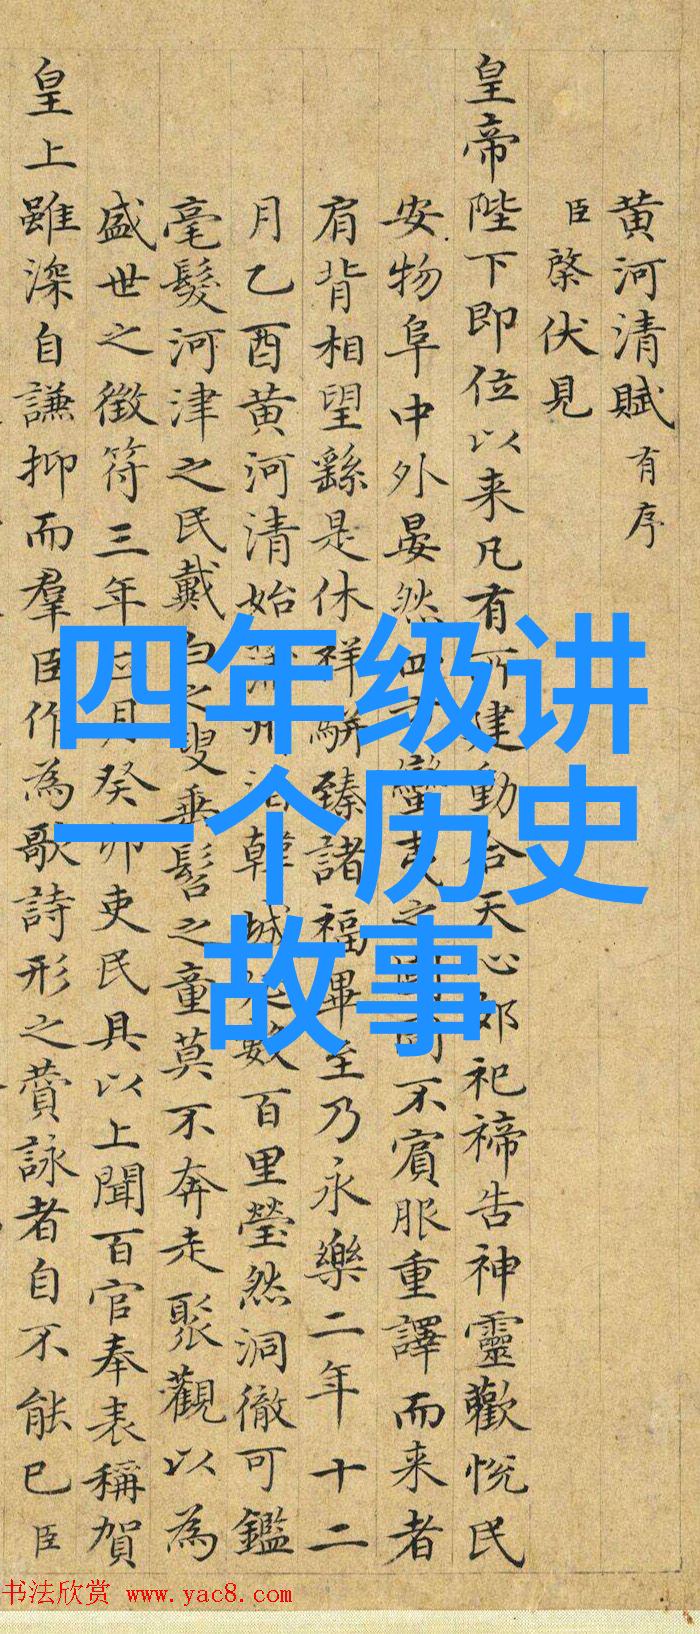 黄河清賦有序
臣棨伏見
皇帝陛下即位以来凡有所建動合天心郊祀禘告神靈歡悅民
安物阜中外晏然四方蠻夷之國罔不賓服重譯而来者
肩背相望繇是休祥駢臻諸福畢至乃永樂二年十二
月乙酉黄河清始蒲州韓城延數百里瑩然洞徹可鑑
毫髮河津之民戴白之叟垂髫之童莫不奔走聚觀以為
盛世之徵符三年正月癸卯吏民具以上聞百官奉表稱賀
皇上雖深自謙抑而羣臣作為歌詩形之賛詠者自不能已臣
四年级讲
一个历史
故事
书法欣赏 www.yac8.com